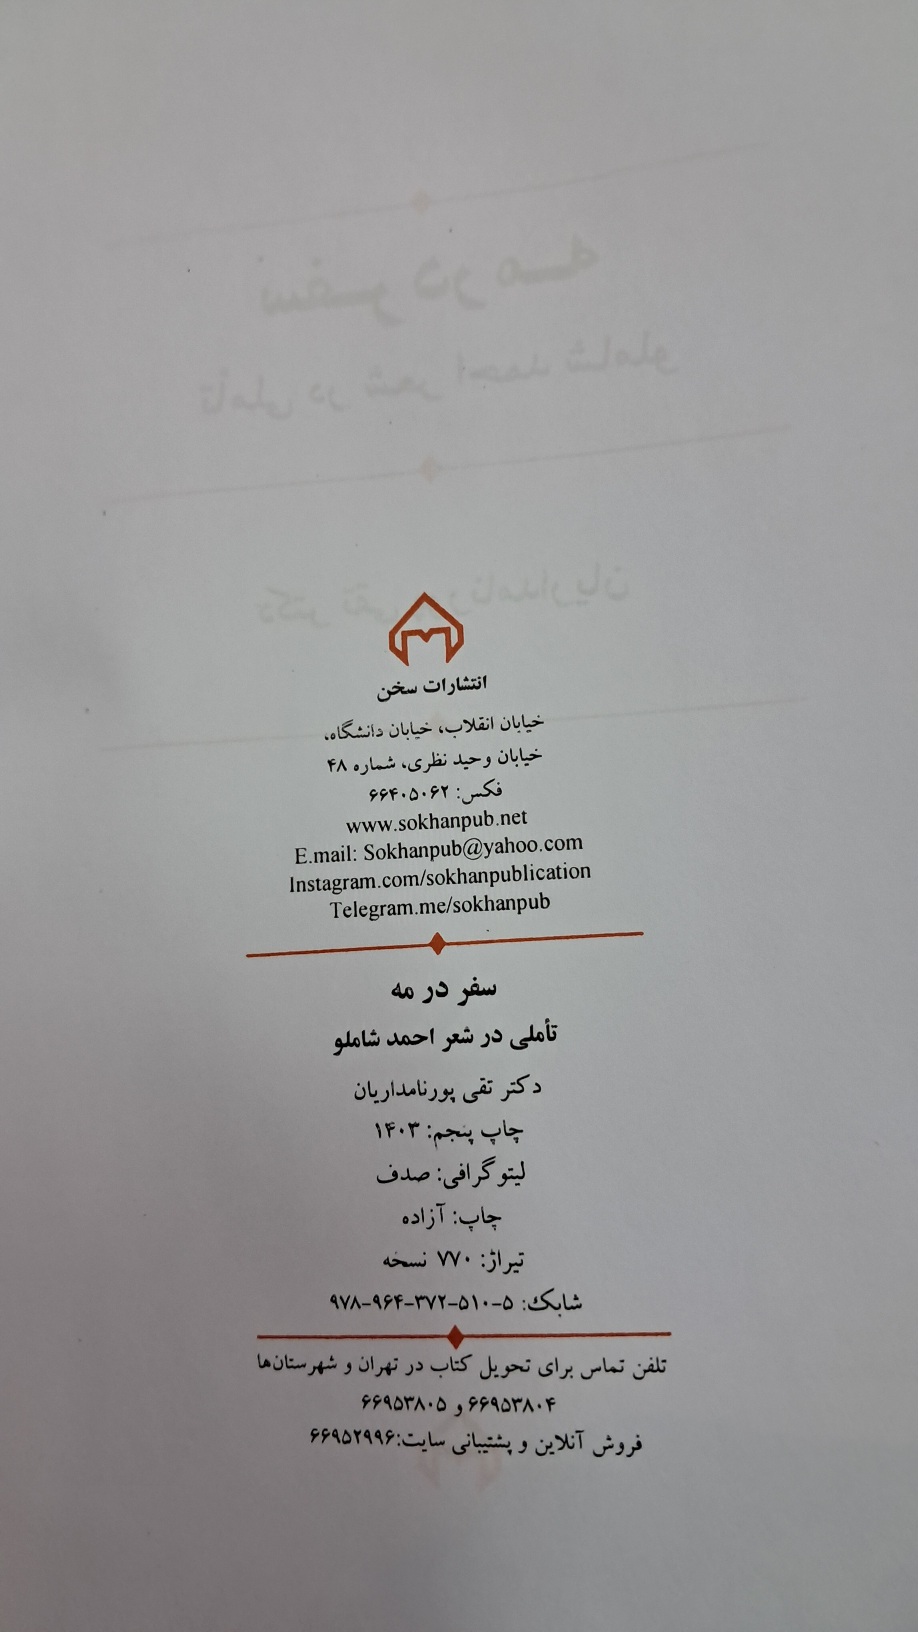 انتشارات سخن
خیابان انقلاب، خیابان دانشگاه،
خیابان وحید نظری، شماره ۴۸
فکس: ۶۶۴۰۵۰۶۲
www.sokhanpub.net
E.mail: Sokhanpub@yahoo.com
Instagram.com/sokhanpublication
Telegram.me/sokhanpub
سفر در مه
تأملی در شعر احمد شاملو
دکتر تقی پورنامداریان
چاپ پنجم: ۱۴۰۳
لیتوگرافی: صدف
چاپ: آزاده
تیراژ: ۷۷۰ نسخه
شابک: ۵-۵۱۰-۳۷۲-۹۶۴-۹۷۸
تلفن تماس برای تحویل کتاب در تهران و شهرستان‌ها
۶۶۹۵۳۸۰۴ و ۶۶۹۵۳۸۰۵
فروش آنلاین و پشتیبانی سایت:۶۶۹۵۲۹۹۶